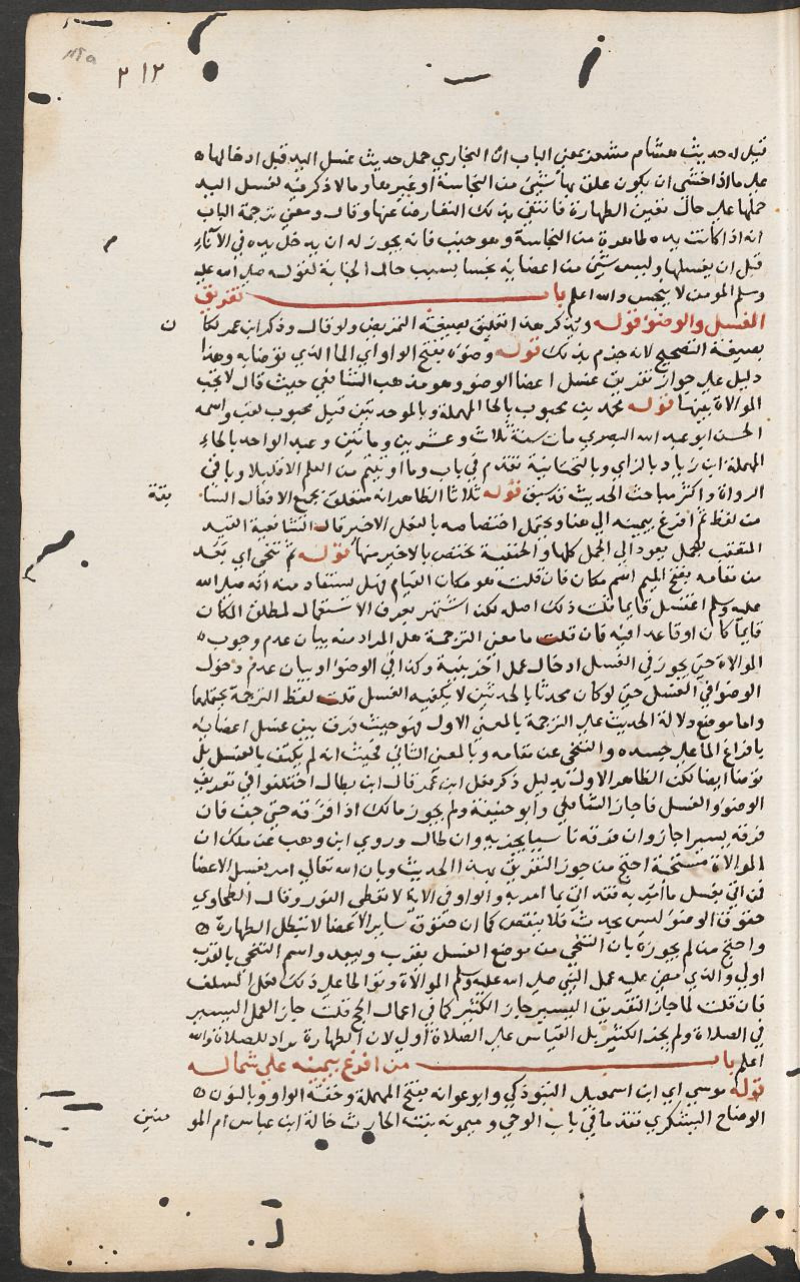 ٢١٢
قيل له حديث هشام مشعر بمعنى الباب ان البخاري حمل حديث غسل اليد قبل ادخالها ه
على ما اذا خشي ان يكون علق بها شيئ من النجاسة او غيرها وما لا ذكر فيه لغسل اليد
حملها على حال تيقن الطهارة فانتفى بذلك التعارض عنها وقال ومعنى ترجمة الباب
انه اذا كانت يده طاهرة من النجاسة وهو جنب فانه يجوز له ان يدخل يده في الاناء
قبل ان يغسلها وليس شيئ من اعضايه نجسا بسبب حال الجنابة لقوله صلى الله عليه
وسلم المومن لا ينجس والله اعلم باب تفريق
الغسل والوضوء قوله ويذكر هذا التعليق بصيغة التمريض ولو قال وذكر ابن عمر لكا
ن
بصيغة التصحيح لانه جزم بذلك قوله وضوه بفتح الواو اي الما الذي توضا به وهذا
دليل على جواز تفريق غسل اعضا الوضو وهو مذهب الشافعي حيث قال لا يجب
الموالاة بينها قوله محمد بن محبوب بالحا المهملة وبالموحدتين قيل محبوب لقب واسمه
الحسن ابو عبد الله البصري مات سنة ثلاث وعشرين ومائتين وعبد الواحد بالحاء
المهملة ابن زياد بالزاي وبالتحتانية تقدم في باب وما اوتيتم من العلم الا قليلا وباقي
الرواة واكثر مباحث الحديث قد سبق قوله ثلاثا الظاهر انه متعلق بجميع الافعال السا
بقة
من لفظ ثم افرغ بيمينه الى هنا ويحتمل اختصاصه بالفعل الاخير قال الشافعية القيد
المتعقب لجمل يعود الى الجمل كلها والحنفية يختص بالاخير منها قوله ثم تنحى اي بعد
من مقامه بفتح الميم اسم مكان فان قلت هو مكان القيام فهل يستفاد منه انه صلى الله
عليه وسلم اغتسل قايما قلت ذلك اصله لكن اشتهر بعرف الاستعمال لمطلق المكان
قايما كان او قاعدا فيه فان قلت ما معنى الترجمة هل المراد منه بيان عدم وجوب ه
الموالاة حتى يجوز في الغسل ادخال عمل اخر بينه وكذا في الوضو او بيان عدم دخول
الوضو في الغسل حتى لو كان محدثا بالحدثين لا يكفيه الغسل قلت لفظ الترجمة يحتملهما
واما موضع دلالة الحديث على الترجمة بالمعنى الاول فهو حيث فرق بين غسل اعضايه
بافراغ الما على جسده والتنحي عن مقامه وبالمعنى الثاني فحيث انه لم يكتف بالغسل بل
توضا ايضا لكن الظاهر الاول بدليل ذكر فعل ابن عمر قال ابن بطال اختلفوا في تفريق
الوضو والغسل فاجاز الشافعي وابو حنيفة ولم يجوز مالك اذا فرقه حتى جف فان
فرقه يسيرا جاز وان فرقه ناسيا يجزيه وان طال وروي ابن وهب عن ملك ان
الموالاة مستحبة احتج من جوز التفريق بهذا الحديث وبان الله تعالى امر بغسل الاعضا
فمن اتى بغسل ما امر به فقد اتى بما امر به والواو في الاية لا تعطي الفور وقال الطحاوي
جفوف الوضو ليس بحدث فلا ينقض كما ان جفوف ساير الاعضا لا تبطل الطهارة ه
واحتج من لم يجوزه بان التنحي من موضع الغسل يقرب ويبعد واسم التنحي بالقرب
اولى والذي مضى عليه عمل النبي صلى الله عليه وسلم الموالاة وتواطا على ذلك فعل السلف
فان قلت لما جاز التفريق اليسير جاز الكثير كما في اعمال الحج قلت جاز العمل اليسير
في الصلاة ولم يجز الكثير بل القياس على الصلاة اولى لان الطهارة تراد للصلاة والله
اعلم باب من افرغ بيمينه على شماله
قوله موسى اي ابن اسمعيل التبوذكي وابو عوانة بفتح المهملة وخفة الواو وبالنون ه
الوضاح اليشكري تقدما في باب الوحي وميمونه بنت الحارث خالة ابن عباس ام المو
منين